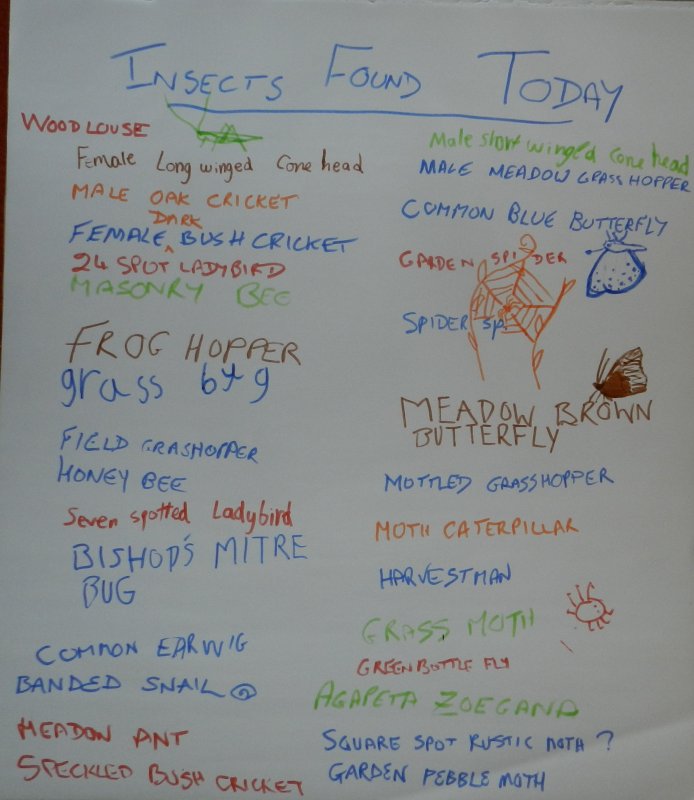 INSECTS FOUND TODAY
WOODLOUSE
Female Long winged Cone head
MALE OAK CRICKET
FEMALE DARK BUSH CRICKET
24 SPOT LADYBIRD
MASONRY BEE
FROG HOPPER
grass bug
FIELD GRASHOPPER
HONEY BEE
Seven spotted Ladybird
BISHOP'S MITRE
BUG
COMMON EARWIG
BANDED SNAIL
MEADOW ANT
SPECKLED BUSH CRICKET
Male short winged Cone head
MALE MEADOW GRASSHOPPER
COMMON BLUE BUTTERFLY
GARDEN SPIDER
SPIDER sp.
MEADOW BROWN
BUTTERFLY
MOTTLED GRASSHOPPER
MOTH CATERPILLAR
HARVESTMAN
GRASS MOTH
GREENBOTTLE FLY
AGAPETA ZOEGANA
SQUARE SPOT RUSTIC MOTH ?
GARDEN PEBBLE MOTH